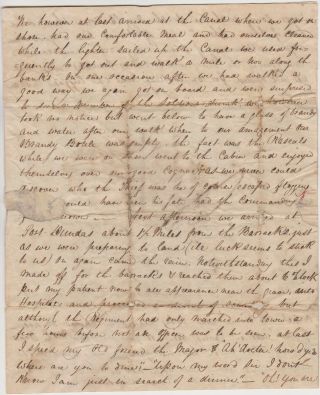 We however at last arrived at the Canal where we got on
shore had one Comfortable Meal and had ourselves cleaned
while the lighter sailed up the Canal we used fre-
quently to get out and walk a mile or two along the
banks. on one occasion after we had walk'd a
good way we again got on board and were surprised
to find a number of the Soldiers drunk we however
took no notice but went below to have a glass of brandy
and water after our walk when to our amazement our
Brandy Bottle was empty the fact was the Rascals
while we were on shore went to the Cabin and enjoyed
themselves over our good Cognac we never could
discover who the Thief was he of course escaped flogging
could have been his fate had the Commanding
known next afternoon we arrived at
Fort Dundas about 1½ Miles from the Barracks, just
as we were preparing to land (ill luck seems to stick
to us) on again came the rain. Notwithstanding this I
made off for the barracks & reached them about 6 o'Clock
But my patient now to all appearance near the grave,
Hospital and but
although the Regiment had only marched into town a
few hours before not an officer was to be seen. at last
I spied my old friend the Major & Ah Doctor! how d'ye do
where are you to dine? "Upon my word Sir I don't
know I am just in search of a dinner" "Oh! you are